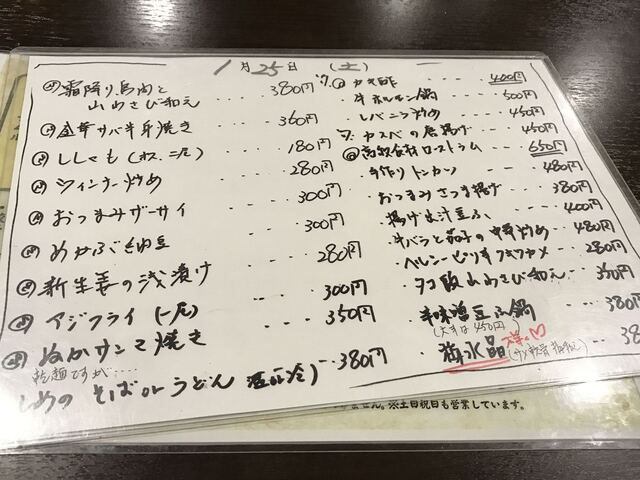 1月25日 (土)
霜降り鳥肉と
山わさび和え ... 380円
金華サバ半身焼き ... 360円
ししゃも(オス二尾) 180円
ウィンナー炒め ... 280円
おつまみザーサイ ... 300円
めかぶ納豆 ... 300円
新生姜の浅漬け ... 280円
アジフライ(一尾) ... 300円
ぬかサンマ焼き ... 350円
乾麺ですが....
しめの そばorうどん 温or冷) ... 380円
カキ酢 ... 400円
牛ホルモン鍋 500円
レバニラ炒め ... 450円
カスベの唐揚げ ... 450円
高級食材ローストラム ... 650円
手作りトンカツ ... 480円
おつまみさつま揚げ ... 380円
揚げ出汁豆ふ ... 400円
牛バラと茄子の中華炒め .. 480円
ヘルシーピリ辛フキワカメ .. 280円
タコ飯山わさび和え .. 350円
味噌豆ふ鍋 ... 380円
(大すは450円)
梅水晶
(サメ軟骨梅和え)
ません。※土日祝日も営業しています。